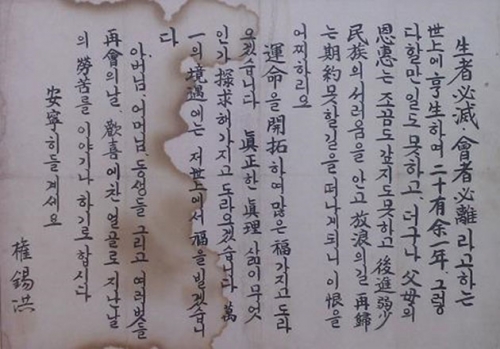 生者必滅 會者必離 라고하는
世上에 享生하여 二十有余一年, 그렇
다할만일도 못하고 더구나 父母의
恩惠는 조곰도 갚지도못하고 後進 
民族의 서러움을 안고 放浪의길 再歸
는 期約못할길을 떠나게되니 이恨을
어찌하리요
運命을 開拓하여많은 福가지고 도라
오겠습니다 眞正한 眞理 삶이무엇
인가 探求해가지고도라오겠습니다 萬
一의 境遇에는 저世上에서 福을 빌겠습니
다
아버님, 어머님, 동생들 그리고 여러벗들
再會의날, 歡喜에찬 얼골로 지난날
의 勞苦를 이야기나하기로합시다
安寧히들계세요
權錫洪